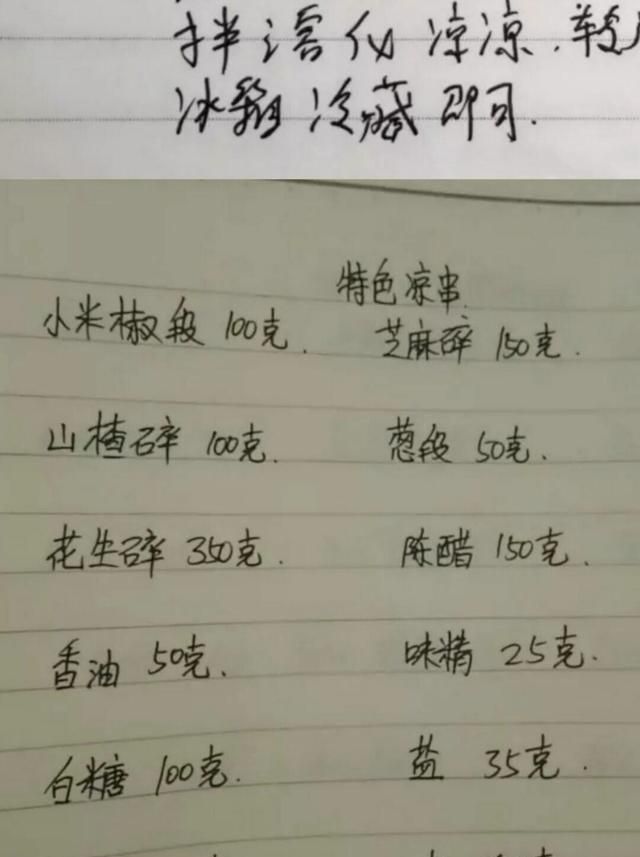 拌溶化凉凉.
冰箱冷藏即可.
特色凉串
小米椒段 100克. 芝麻碎 150克.
山楂碎 100克. 葱段 50克.
花生碎 350克. 陈醋 150克.
香油 50克. 味精 25克.
白糖 100克. 盐 35克.